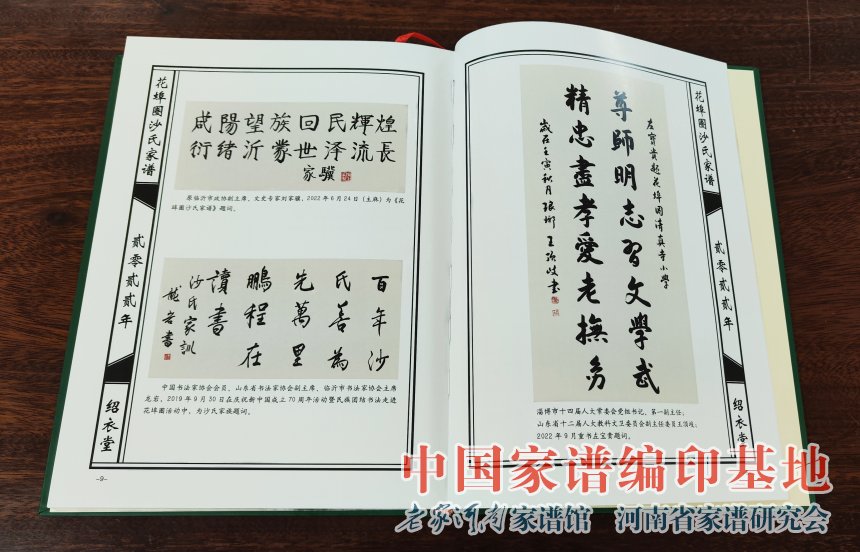 花埠圈沙氏家谱
贰零贰贰年
绍衣堂
咸陽望族回民輝煌
衍緒沂蒙世澤流長
家驥
原临沂市政协副主席、文史专家刘家骥,2022年6月24日(主麻)为《花
埠圈沙氏家谱》题词。
百年沙
氏善為
先萬里
鵬程在
讀書
沙氏家訓
龍岩書
中国书法家协会会员、山东省书法家协会副主席、临沂市书法家协会主席
龙岩,2019年9月30日在庆祝新中国成立70周年活动暨民族团结书法走进
花埠圈活动中,为沙氏家族题词。
-9-
左寶貴題花埠圈清真寺小學
尊師明志習文學武
精忠盡孝愛老撫幼
歲在壬寅秋月琅琊王頂岐書
淄博市十四届人大常委会党组书记、第一副主任,
山东省十二届人大教科文卫委员会副主任委员王顶岐,
2022年9月重书左宝贵题词。
花埠圈沙氏家谱
贰零贰贰年
绍衣堂
中国家谱编印基地
老家河南家谱馆 河南省家谱研究会